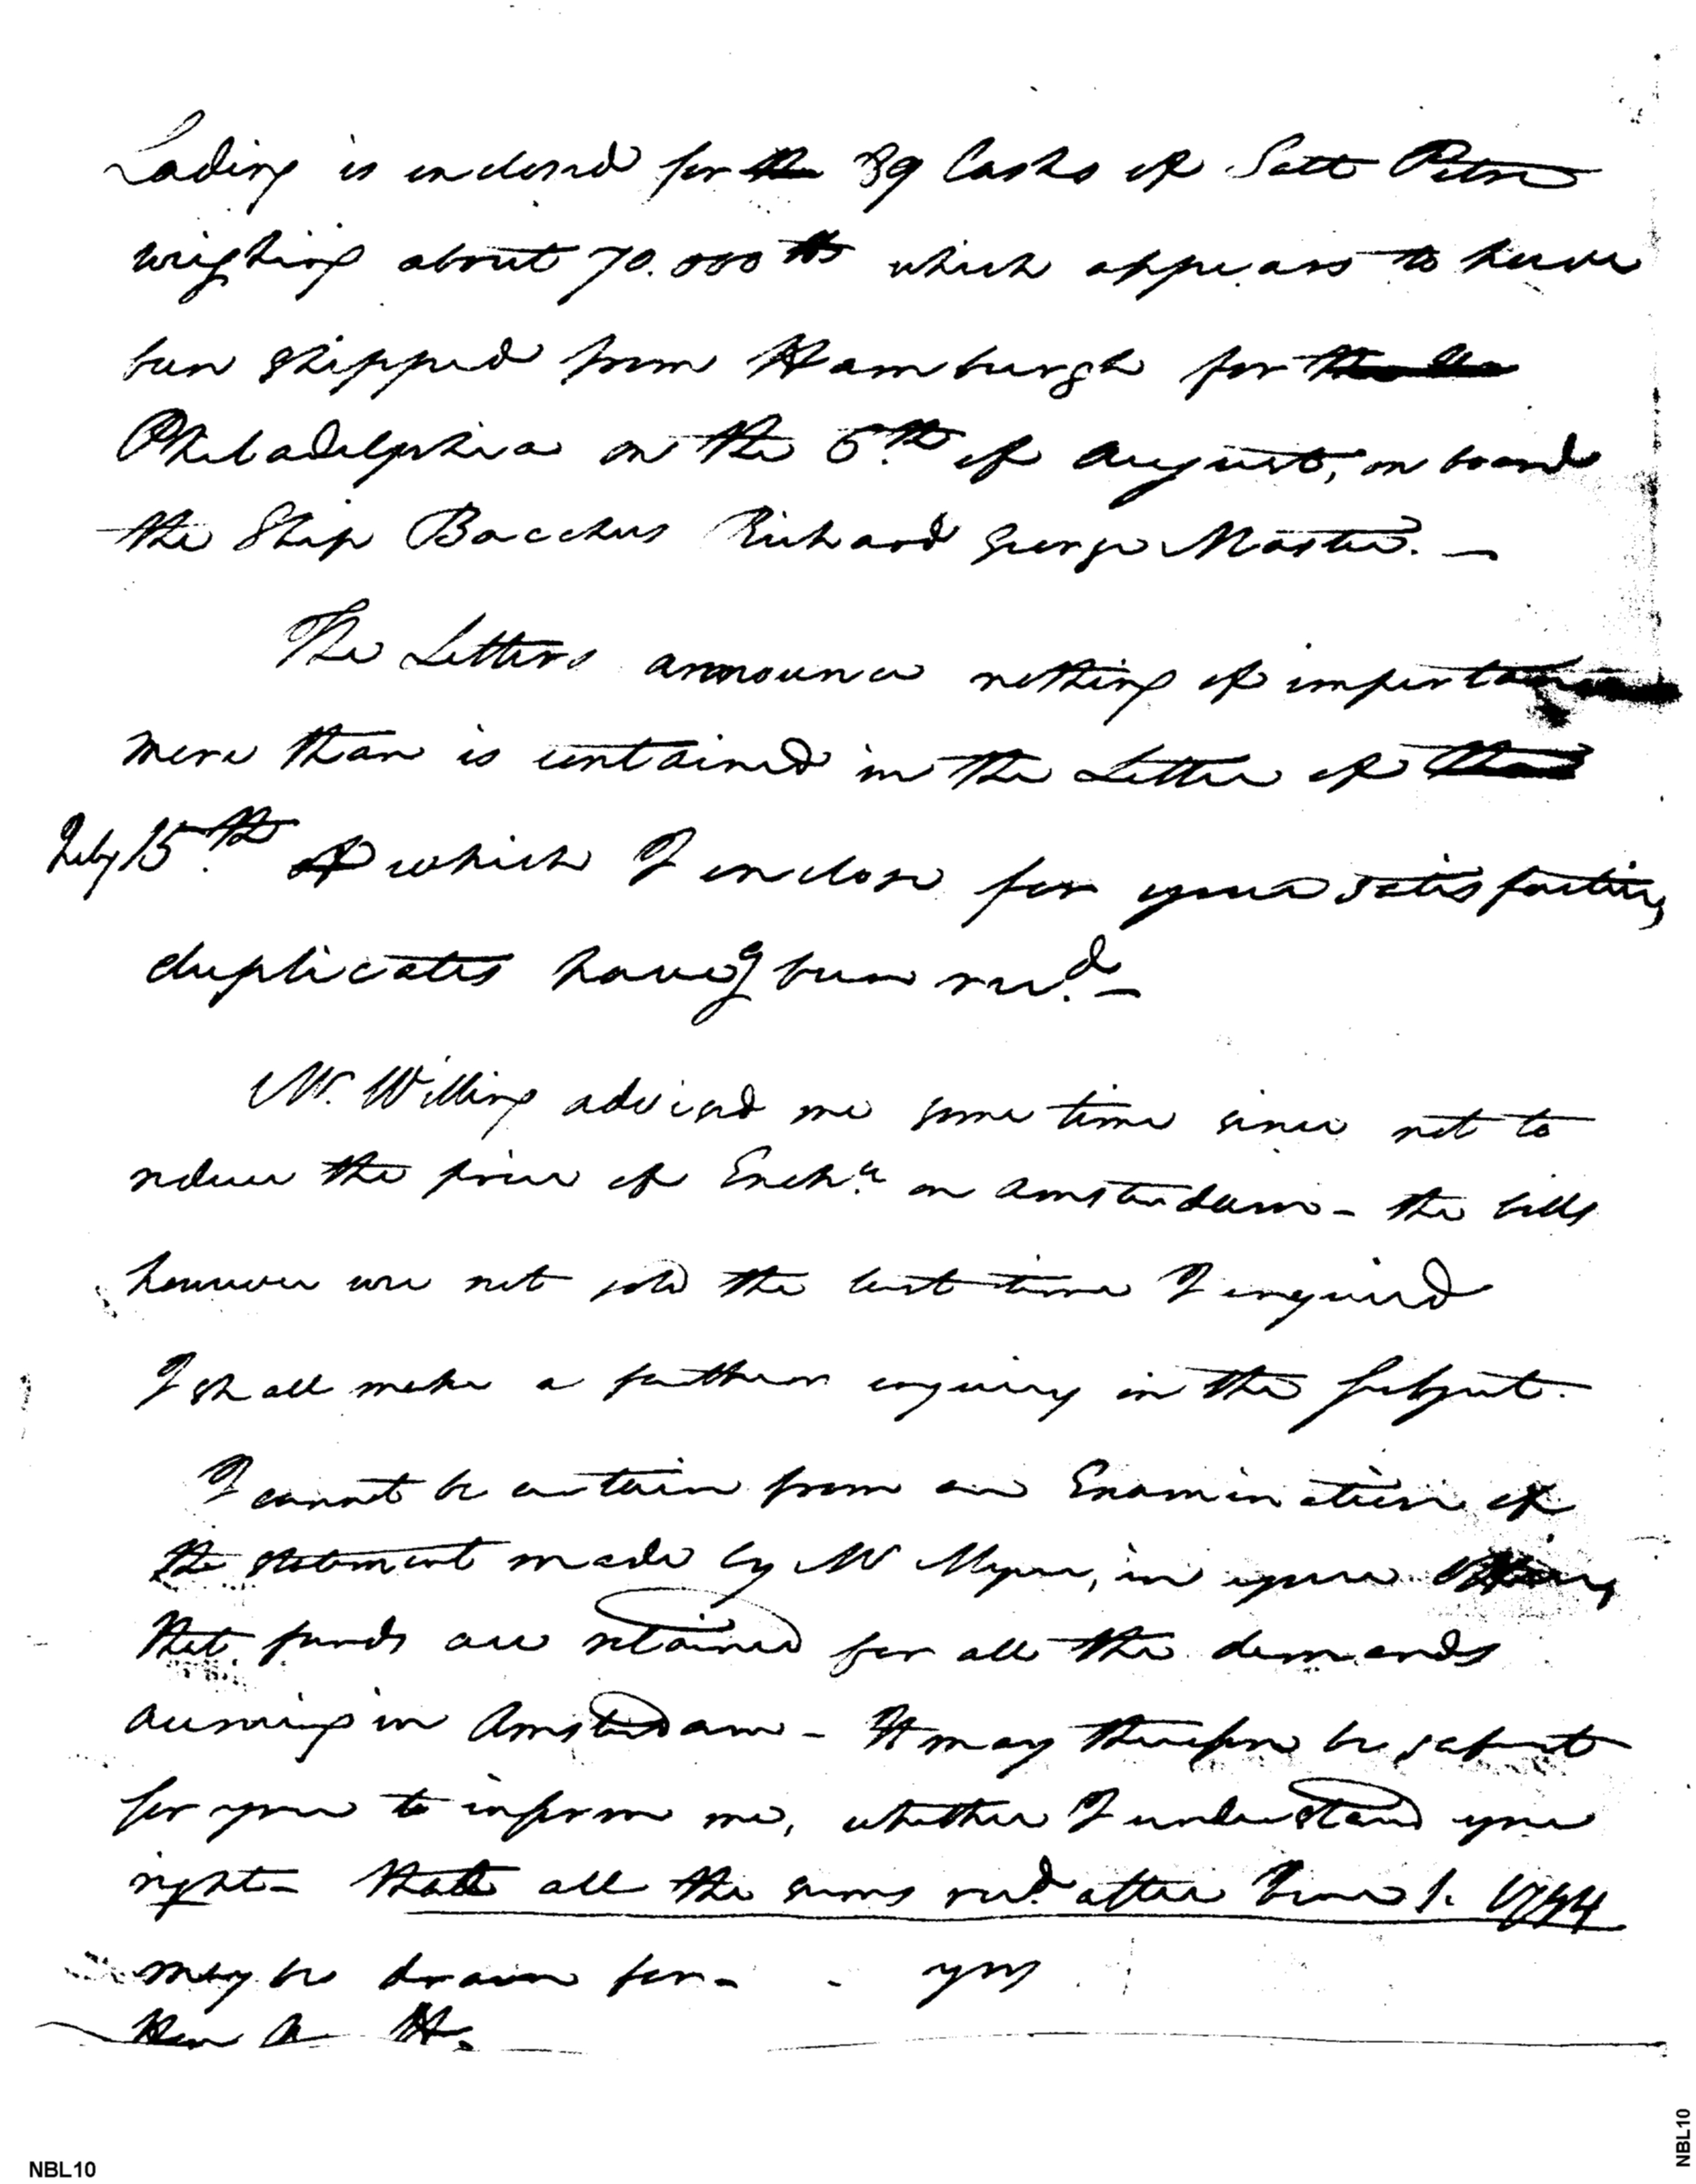 Lading is enclosed for the 89 Casks of Salt Petre
weighing about 70.000 lbs which appears to have
been shipped from Hamburgh for
Philadelphia on the 5th of August, on board
the Ship Bacchus Richard George Master. —
The Letters announce nothing of importance
more than is contained in the Letter of
July 15.th of which I enclose for your satisfaction,
duplicates have been recd. —
Mr. Willing advised me some time since not to
reduce the price of Exch.e on Amsterdam - the bills
however were not sold the last time I enquired
I shall make a further enquiry in the subject.
I cannot be certain from an Examination of
the statement made by Mr Meyer, in your
that funds are retained for all the demands
accruing in Amsterdam - It may therefore be safest
for you to inform me, whether I understand you
right - that all the sums recd. after June 1. 1794
may be drawn for - yrs
Hon A H.
NBL10
NBL10